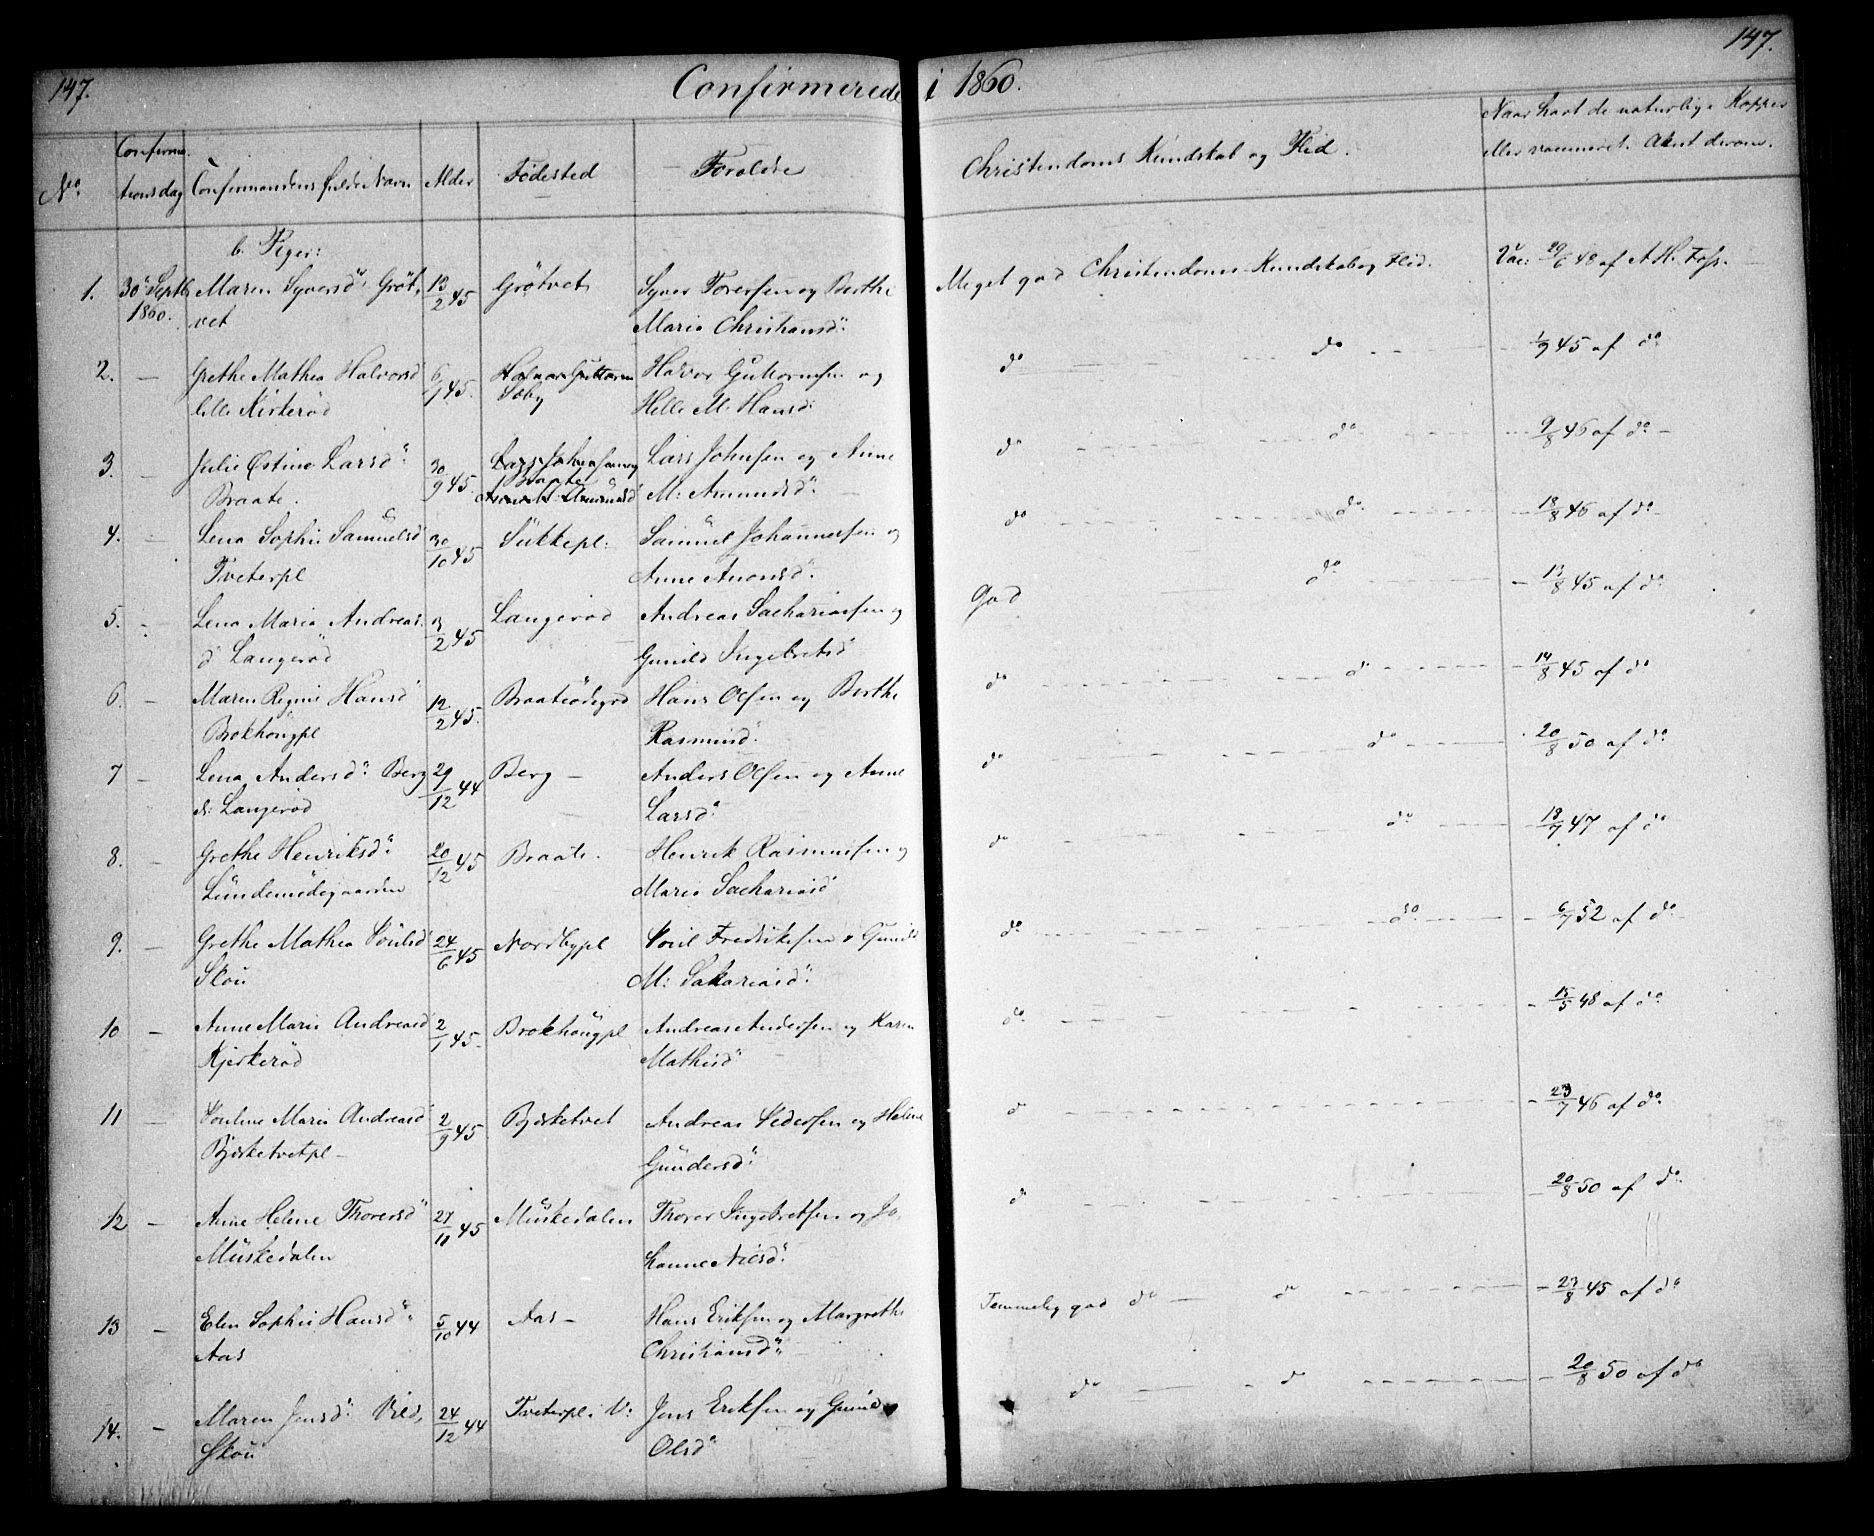 147.
Confirmerede i 1860.
147.
No.
Confirma-
tionsdag
Confirmandens fulde Navn
Alder
Fødested
Forældre
Christendoms Kundskab og Flid.
Naar havt de naturlige Kopper
eller vaccineret. Attest derom.
b. Piger:
1. 30d Septb 1860. Maren Syversd. Grøt, 13/2 45 Grøtvet Syver Torersen og Berthe Meget god Christendoms Kundskab og Flid. Vac: 29/6 48 af A. H. Fossr.
vet Maria Christiansd:
2. — Grethe Mathea Halvorsd 6/1 45. Halvor Guttormsen Halvor Guttormsen og do do 1/9 45 af do
lille Kirkerød Søby Helle M. Hansd:
3. — Julie Østine Larsd: 30/9 45. Lars Johnsen og Lars Johnsen og Anne do do 9/8 46 af do
Braate. Braate Anne M: Amundsd M: Amundsd:
4. — Lena Sophie Samuelsd 30/10 45 Sukkepl: Samuel Johannessen og do do 18/8 46 af do
Tveterpl Anne Aronsd:
5. — Lena Maria Andreas: 3/2 45 Langerød Andreas Sachariasen og God do 13/8 45 af do
d Langerød Gunild Ingebretsd
6. — Maren Regine Hansd 12/2 45. Braateødegrd Hans Olsen og Berthe do do 14/8 45 af do
Brokhougpl Rasmusd.
7 — Lena Andersd: Berg 29/12 44 Berg — Anders Olsen og Anne do do 20/8 50 af do
el: Langerød Larsd:
8. — Grethe Henriksd: 20/12 45 Braate. Henrik Rasmussen og do do 18/7 47 af do
Lundemødegaarden Maria Sachariasd
9. — Grethe Mathea Poulsd 24/6 45 Nordbypl Poul Fredriksen o Gunild do do 6/7 52 af do
Skou M: Sakariasd:
10 — Anne Marie Andreasd 2/1 45. Brokhougpl Andreas Andersen og Karen do 15/5 48 af do
Kjerkerød Mathisd
11 — Pouline Maria Andreasd 2/9 45 Bjørketvet Andreas Pedersen og Helene do 23/7 46 af do
Bjørketvetpl — Gundersd:
12 — Anne Helene Thorersd 27/11 45 Muskedalen Thorer Ingebretsen og Jo, do 20/8 50 af do
Muskedalen hanne Nilsd:
13 — Elen Sophie Hansd: 5/10 44 Aas — Hans Eriksen og Margrethe Temmelig god do — do 23/8 45 af do
Aas Christiansd:
14. — Maren Jensd: Vild, 24/12 44 Tveterpl i V: Jens Eriksen og Gunild do — do 20/8 50 af do
Skou Olsd